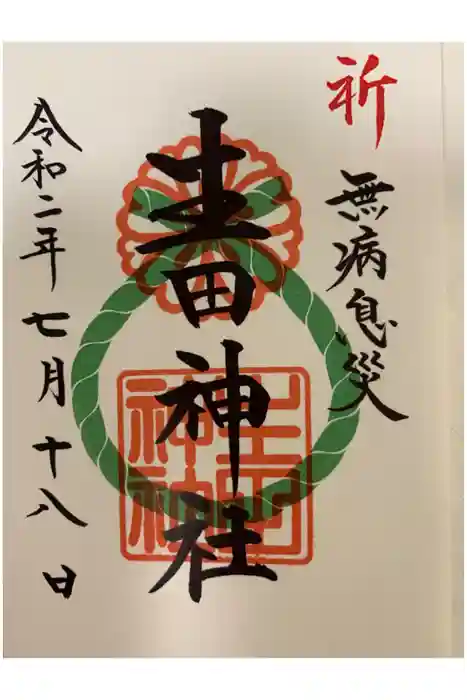 祈
無病息災
生田神社
生田
神社
令和二年七月十八日